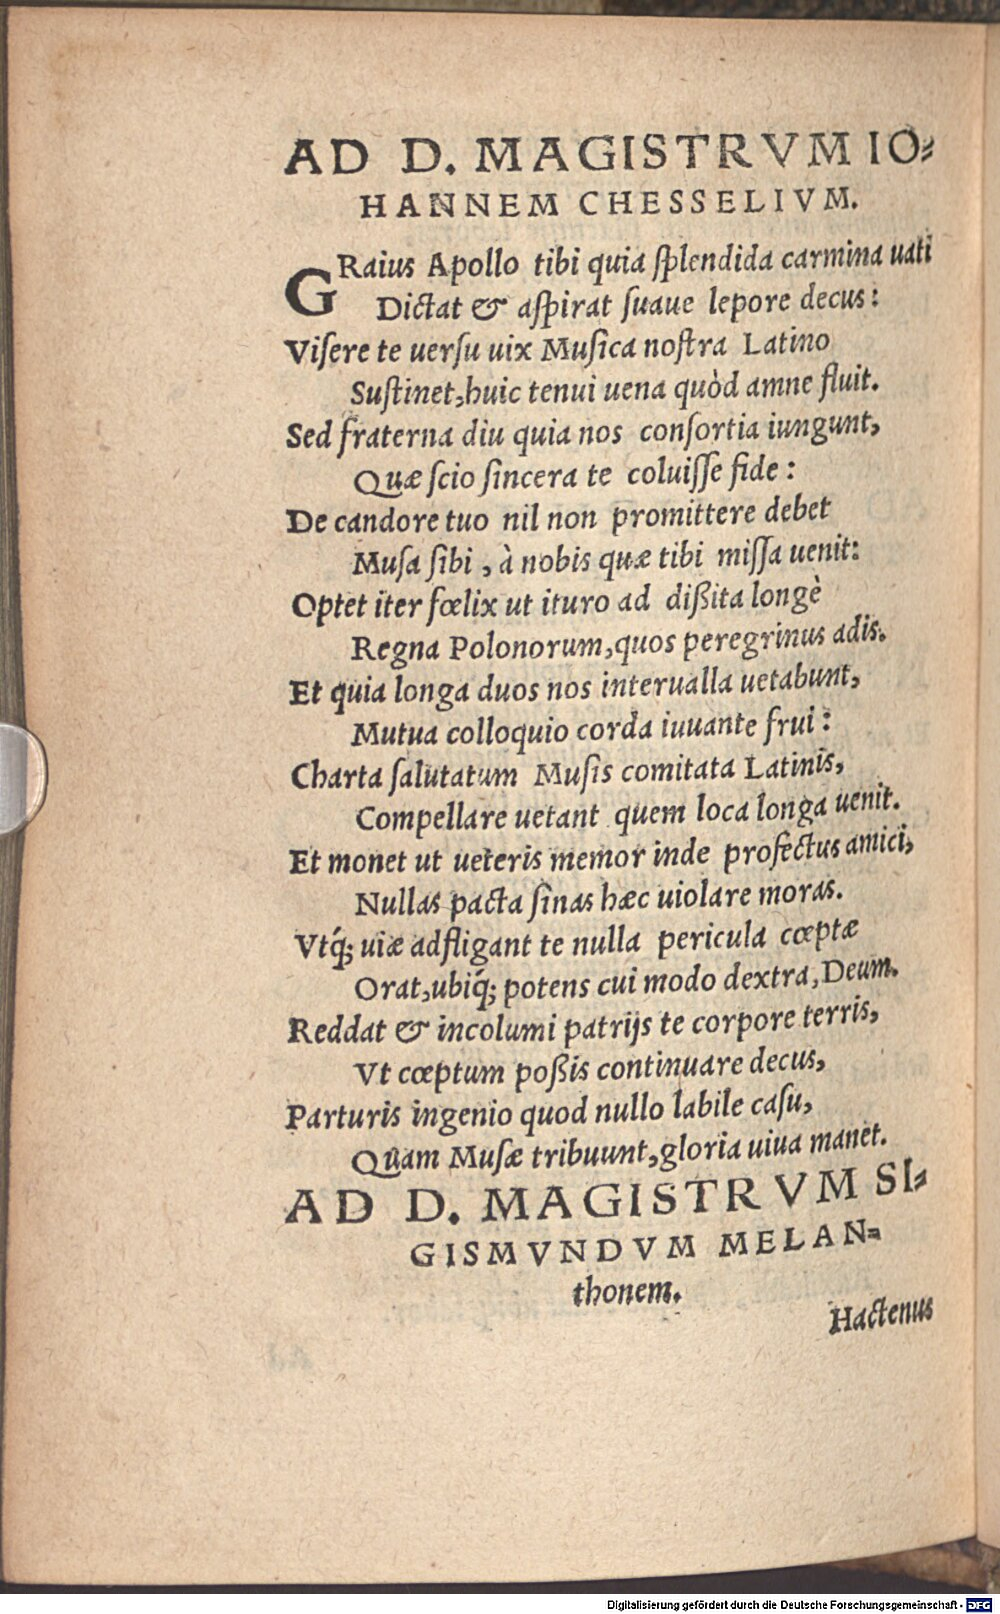 AD D. MAGISTRVM IO⸗
HANNEM CHESSELIVM.
GRaius Apollo tibi quia ſplendida carmina uati
Dictat & aſpirat ſuaue lepore decus:
Viſere te uerſu uix Muſica noſtra Latino
Suſtinet, huic tenui uena quòd amne fluit.
Sed fraterna diu quia nos conſortia iungunt,
Quæ ſcio ſincera te coluiſſe fide:
De candore tuo nil non promittere debet
Muſa ſibi, à nobis quæ tibi miſſa uenit:
Optet iter fœlix ut ituro ad dißita longè
Regna Polonorum, quos peregrinus adis.
Et quia longa duos nos interualla uetabunt,
Mutua colloquio corda iuuante frui:
Charta ſalutatum Muſis comitata Latinis,
Compellare uetant quem loca longa uenit.
Et monet ut ueteris memor inde profectus amici,
Nullas pacta ſinas hæc uiolare moras.
Vtq́; uiæ adfligant te nulla pericula cœptæ
Orat, ubiq́; potens cui modo dextra, Deum.
Reddat & incolumi patrijs te corpore terris,
Vt cœptum poßis continuare decus,
Parturis ingenio quod nullo labile caſu,
Quàm Muſæ tribuunt, gloria uiua manet.
AD D. MAGISTRVM SI⸗
GISMVNDVM MELAN⸗
thonem.
Hactenus
Digitalisierung gefördert durch die Deutsche Forschungsgemeinschaft - DFG